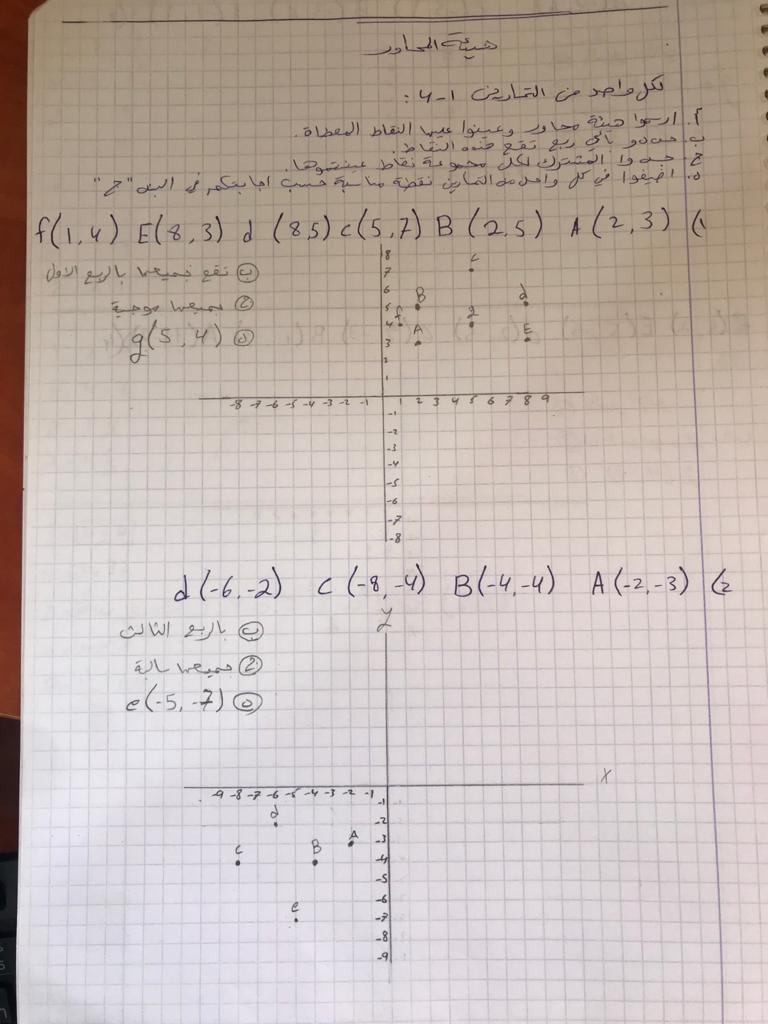 هيئة المحاور
لكل واحد من التمارين 1-4:
أ. ارسموا هيئة محاور وعينوا عليها النقاط المعطاة.
ب. حددوا بأي ربع تقع هذه النقاط.
ج. جدوا المشترك لكل مجموعة نقاط عينتموها.
د. اضيفوا في كل واحد من التمارين نقطة مناسبة حسب اجابتكم في البند "ج"
f(1,4) E(8,3) d (8,5) c(5,7) B (2,5) A (2,3) (1
ب تقع جميعها بالربع الاول
ج جميعها موجبة
د g(5,4)
8
7
6
5
4
3
2
1
c
B
d
f
g
A
E
-8 -7 -6 -5 -4 -3 -2 -1 1 2 3 4 5 6 7 8 9
-1
-2
-3
-4
-5
-6
-7
-8
d(-6,-2) C(-8,-4) B(-4,-4) A(-2,-3) (2
ب بالربع الثالث
ج جميعها سالبة
د e(-5,-7)
y
x
-9 -8 -7 -6 -5 -4 -3 -2 -1
-1
-2
-3
-4
-5
-6
-7
-8
-9
d
A
B
c
e